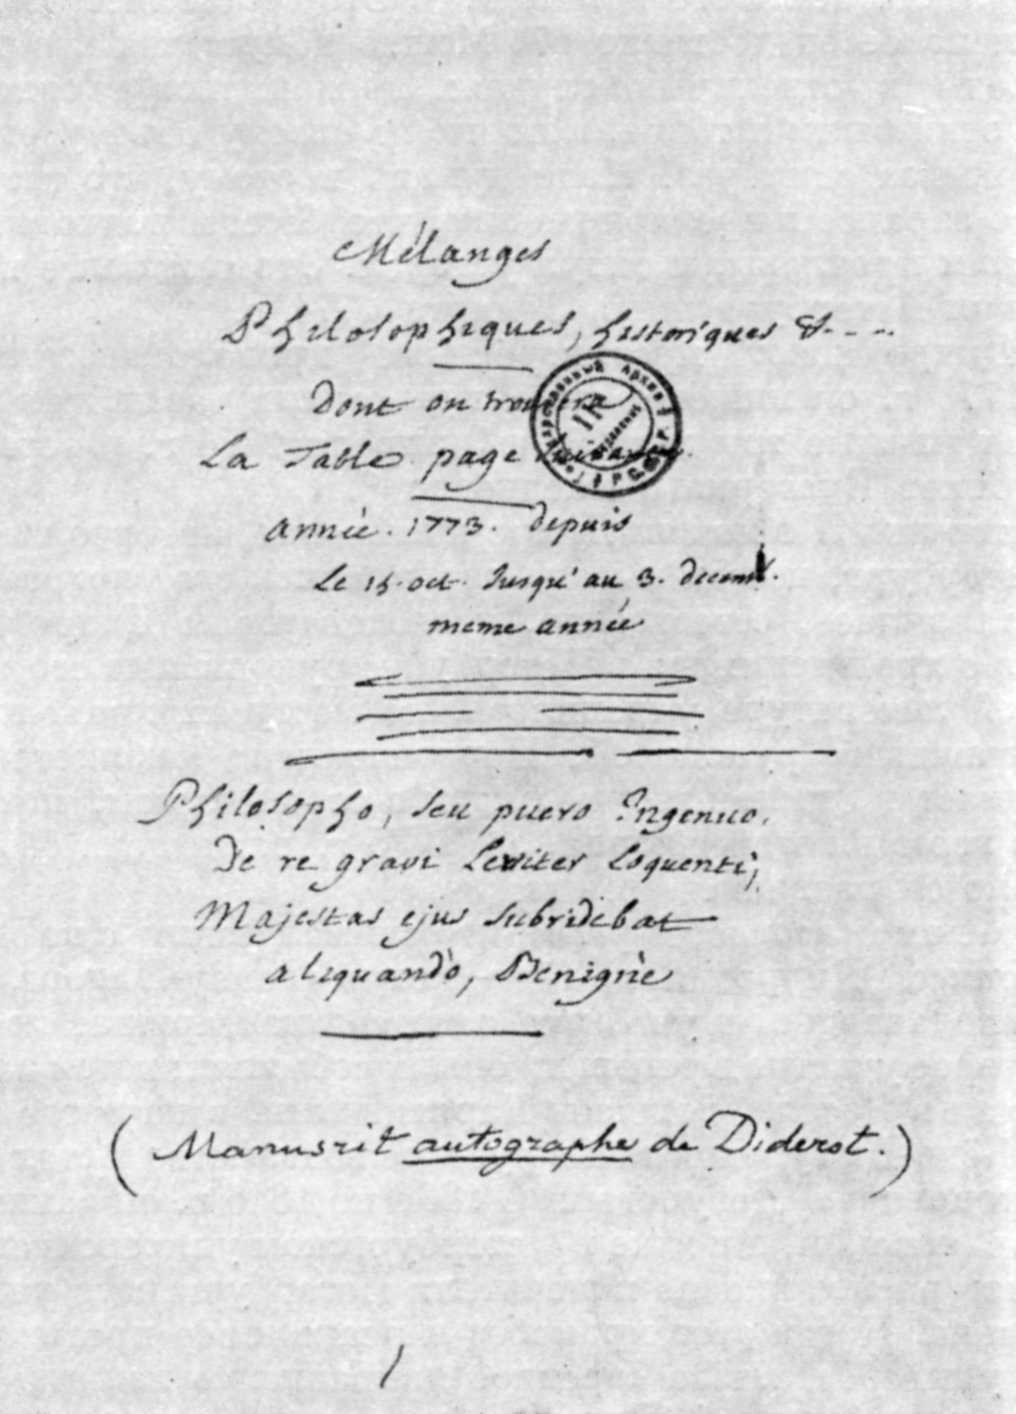 Mélanges
Philosophiques, historiques &. - - -
Dont on trouvera
La Table page suivante.
année. 1773. Depuis
Le 15. oct. Jusqu'au 3. decemb.
meme année
Philosopho, seu puero Ingenuo,
De re gravi Leviter Loquenti,
Majestas ejus subridebat
aliquandò, Benignè
(Manusrit autographe de Diderot.)
1